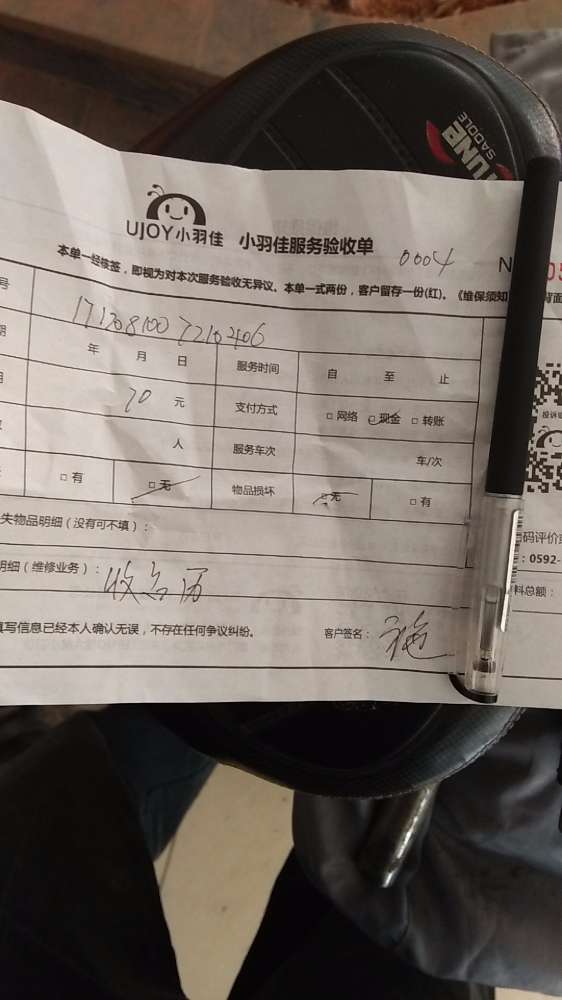 TUNE
SADDLE
UJOY小羽佳 小羽佳服务验收单 0004
本单一经核签，即视为对本次服务验收无异议。本单一式两份，客户留存一份(红)。《维保须知
号
年 月 日 服务时间 自 至 止
70 元 支付方式 □网络 □现金 □转账
人 服务车次 车/次
□有 □无 物品损坏 □无 □有
失物品明细（没有可不填）：
明细（维修业务）：
填写信息已经本人确认无误，不存在任何争议纠纷。 客户签名：施
码评价
：0592-
料总额：